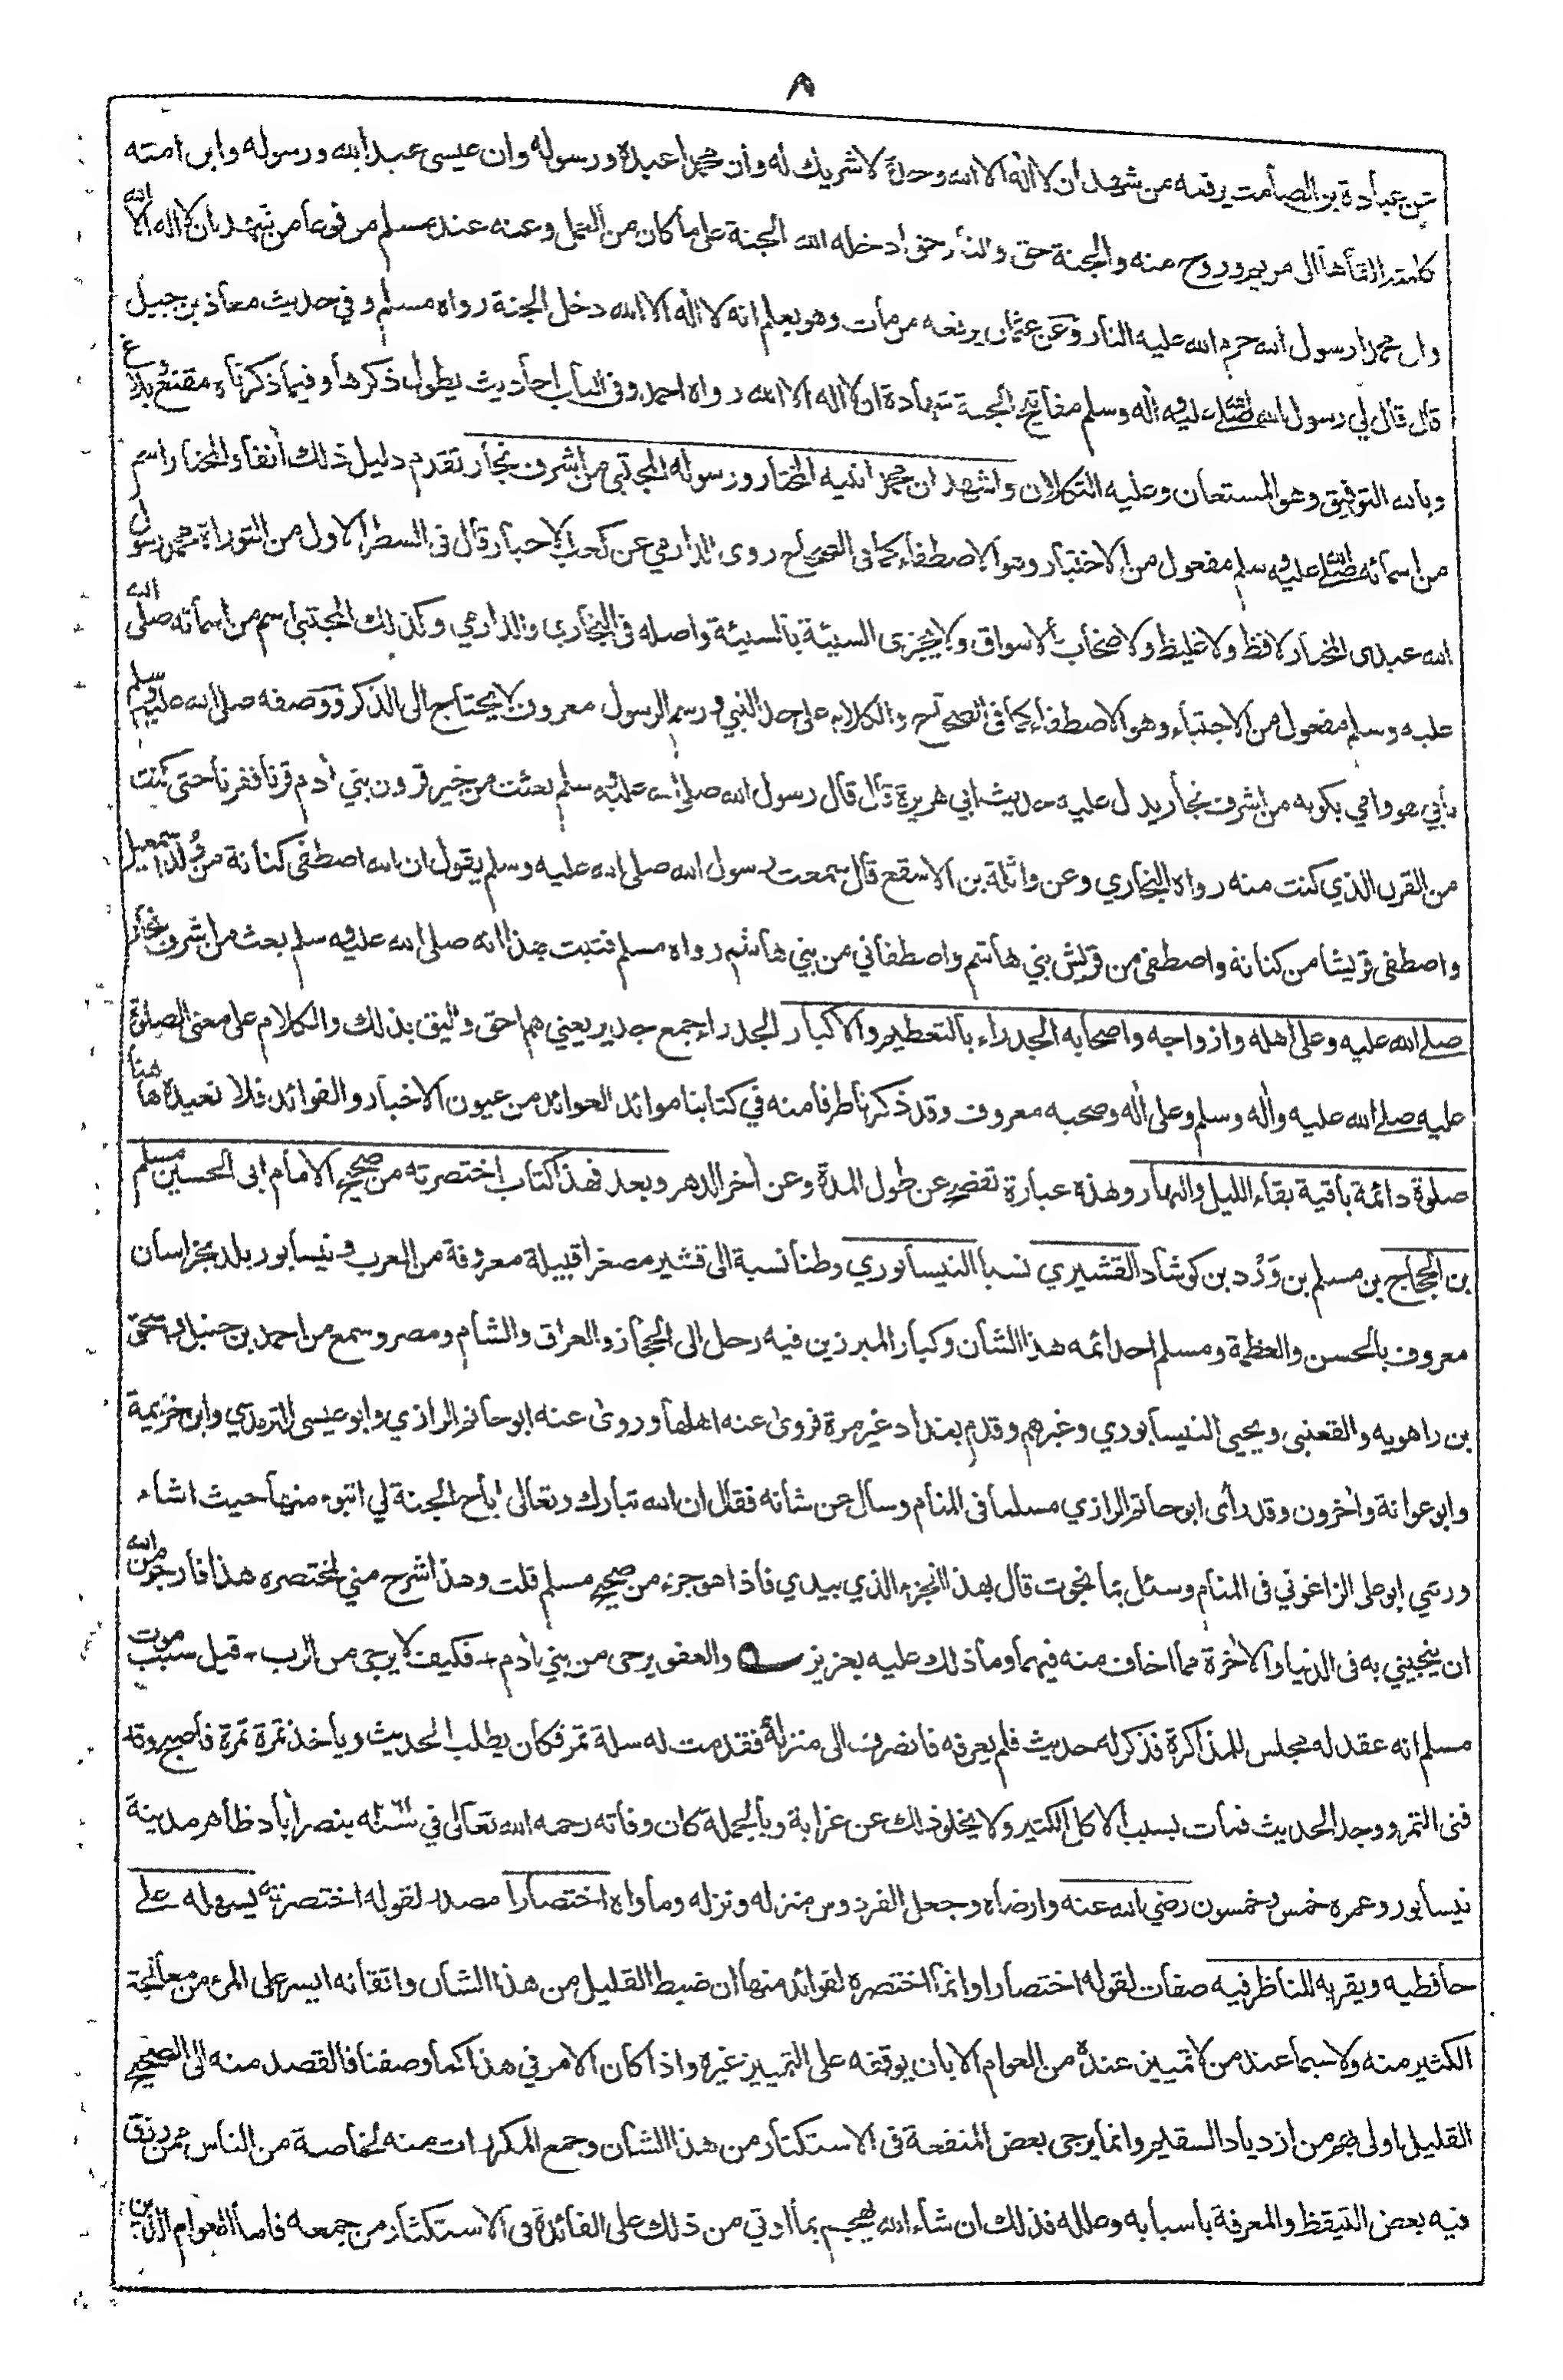 ٨
عن عبادة بن الصامت يرفعه من شهد ان لا اله الا الله وحده لا شريك له وان محمدا عبده ورسوله وان عيسى عبد الله ورسوله وابن امته
كلمته القاها الى مريم وروح منه والجنة حق والنار حق ادخله الله الجنة على ما كان من العمل وعنه عند مسلم مرفوعا من شهد ان لا اله الا الله
وان محمدا رسول الله حرم الله عليه النار وعن عثمان يرفعه من مات وهو يعلم انه لا اله الا الله دخل الجنة رواه مسلم وفي حديث معاذ بن جبل
قال قال لي رسول الله صلى الله عليه واله وسلم مفاتيح الجنة شهادة ان لا اله الا الله رواه احمد وفي الباب احاديث يطول ذكرها وفيما ذكرناه مقنع وبلاغ
وبالله التوفيق وهو المستعان وعليه التكلان واشهد ان محمدا نبيه المختار ورسوله المجتبى من اشرف نجار تقدم دليل ذلك أنفا والمختار اسم
من اسمائه صلى الله عليه وسلم مفعول من الاختيار وهو الاصطفاء كما في الصحاح روى الدارمي عن كعب الاحبار قال في السطر الاول من التوراة محمد رسول
الله عبدى المختار لا فظ ولا غليظ ولا صخاب بالاسواق ولا يجزى السيئة بالسيئة واصله في البخاري والدارمي وكذلك المجتبى اسم من اسمائه صلى الله
عليه وسلم مفعول من الاجتباء وهو الاصطفاء كما في الصحاح والكلام على حد النبي ورسم الرسول معروف لا يحتاج الى الذكر ووصفه صلى الله عليه وسلم
بأبي هو وامي بكونه من اشرف نجار يدل عليه حديث ابي هريرة قال قال رسول الله صلى الله عليه وسلم بعثت من خير قرون بني أدم قرنا فقرنا حتى كنت
من القرن الذي كنت منه رواه البخاري وعن واثلة بن الاسقع قال سمعت رسول الله صلى الله عليه وسلم يقول ان الله اصطفى كنانة من ولد اسمعيل
واصطفى قريشا من كنانه واصطفى من قريش بني هاشم واصطفاني من بني هاشم رواه مسلم فثبت بهذا انه صلى الله عليه وسلم بعث من اشرف نجار
صلى الله عليه وعلى اهله وازواجه واصحابه الجدراء بالتعظيم والاكبار الجدراء جمع جدير يعني هم احق واليق بذلك والكلام على معنى الصلوة
عليه صلى الله عليه واله وسلم وعلى أله وصحبه معروف وقد ذكرنا طرفا منه في كتابنا موائد العوائد من عيون الاخبار والفوائد فلا نعيده ها هنا
صلوة دائمة باقية بقاء الليل والنهار وهذه عبارة تفصح عن طول المدة وعن أخر الدهر وبعد فهذا كتاب اختصرته من صحيح الامام ابى الحسين مسلم
بن الحجاج بن مسلم بن وَرْد بن كوشاد القشيري نسبا النيسابوري وطنا نسبة الى قشير مصغرا قبيلة معروفة من العرب ونيسابور بلد بخراسان
معروف بالحسن والعظمة ومسلم احد ائمه هذا الشان وكبار المبرزين فيه رحل الى الحجاز والعراق والشام ومصر وسمع من احمد بن حنبل واسحق
بن راهويه والقعنبى ويحيى النيسابوري وغيرهم وقدم بغداد غير مرة فروى عنه اهلها وروى عنه ابو حاتم الرازي وابو عيسى الترمذي وابن خزيمة
وابو عوانة وأخرون وقد رأى ابو حاتم الرازي مسلما فى المنام وسأل عن شانه فقال ان الله تبارك وتعالى اباح الجنة لي اتبوء منها حيث اشاء
ورئي ابو على الزاغونى فى المنام وسئل بما نجوت قال بهذا الجزء الذي بيدي فاذا هو جزء من صحيح مسلم قلت وهذا شرح مني لمختصره هذا فارجو من الله
ان ينجيني به فى الدنيا والاخرة مما اخاف منه فيهما وما ذلك عليه بعزيز والعفو يرجى من بني أدم + فكيف لا يرجى من الرب + قيل سبب موت
مسلم انه عقد له مجلس للمذاكرة فذكر له حديث فلم يعرفه فانصرف الى منزله فقدمت له سلة تمر فكان يطلب الحديث وياخذ تمرة تمرة فأصبح وقد
فنى التمر ووجد الحديث فمات بسبب الاكل الكثير ولا يخلو ذلك عن غرابة وبالجملة كان وفاته رحمه الله تعالى في سنة ٢٦١ بنصر أباد ظاهر مدينة
نيسابور وعمره خمس وخمسون رضي الله عنه وارضاه وجعل الفردوس منزله ونزله وماواه اختصارا مصدر لقوله اختصرته يسهله على
حافظيه ويقربه للناظر فيه صفات لقوله اختصارا وانما اختصره لفوائد منها ان ضبط القليل من هذا الشان واتقانه ايسر على المرء من معالجة
الكثير منه ولا سيما عند من لا تمييز عنده من العوام الا بان يوقفه على التمييز غيره واذا كان الامر في هذا كما وصفنا فالقصد منه الى الصحيح
القليل اولى بهم من ازدياد السقيم وانما يرجى بعض المنفعة فى الاستكثار من هذا الشان وجمع المكررات منه لخاصة من الناس ممن رزق
فيه بعض التيقظ والمعرفة باسبابه وعلله فذلك ان شاء الله يهجم بما اوتي من ذلك على الفائدة فى الاستكثار من جمعه فاما العوام الذين